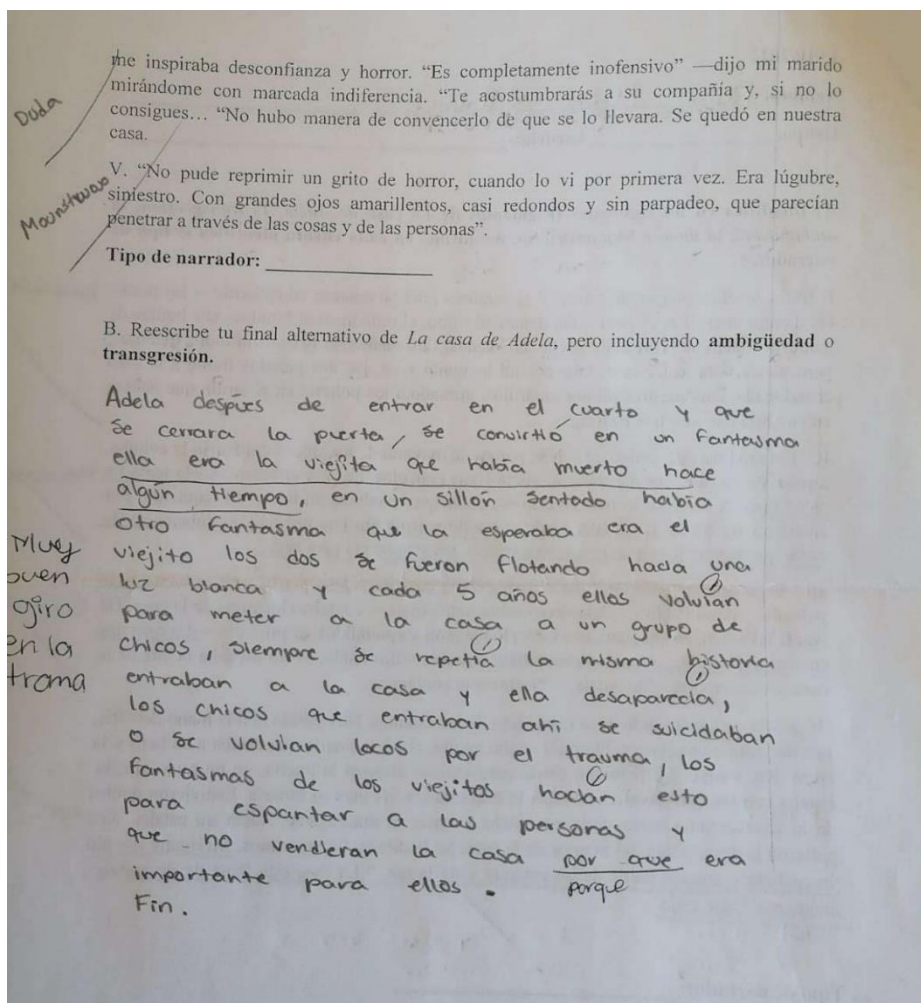 me inspiraba desconfianza y horror. “Es completamente inofensivo” —dijo mi marido
mirándome con marcada indiferencia. “Te acostumbrarás a su compañía y, si no lo
consigues… “No hubo manera de convencerlo de que se lo llevara. Se quedó en nuestra
casa.
Duda
V. “No pude reprimir un grito de horror, cuando lo vi por primera vez. Era lúgubre,
siniestro. Con grandes ojos amarillentos, casi redondos y sin parpadeo, que parecían
penetrar a través de las cosas y de las personas”.
Mounstruoso
Tipo de narrador: ____________________
B. Reescribe tu final alternativo de La casa de Adela, pero incluyendo ambigüedad o
transgresión.
Adela despúes de entrar en el cuarto y que
se cerrara la puerta, se convirtió en un fantasma
ella era la viejita que había muerto hace
algún tiempo, en un sillón sentado había
otro fantasma que la esperaba era el
viejito los dos se fueron flotando hacia una
luz blanca y cada 5 años ellos volvían
para meter a la casa a un grupo de
chicos, siempre se repetía la misma historia
entraban a la casa y ella desaparecía,
los chicos que entraban ahí se suicidaban
o se volvían locos por el trauma, los
fantasmas de los viejitos hacían esto
para espantar a las personas y
que no vendieran la casa por que era
porque
importante para ellos.
Fin.
Muy
buen
giro
en la
trama